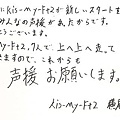 にKis-My-Ft2が新しいスタートを
みんなの声援があったからです。
ございます。
My-Ft2、7人で、上へ上へ走って
きますので、これからも
声援 お願いします。
Kis-My-Ft2